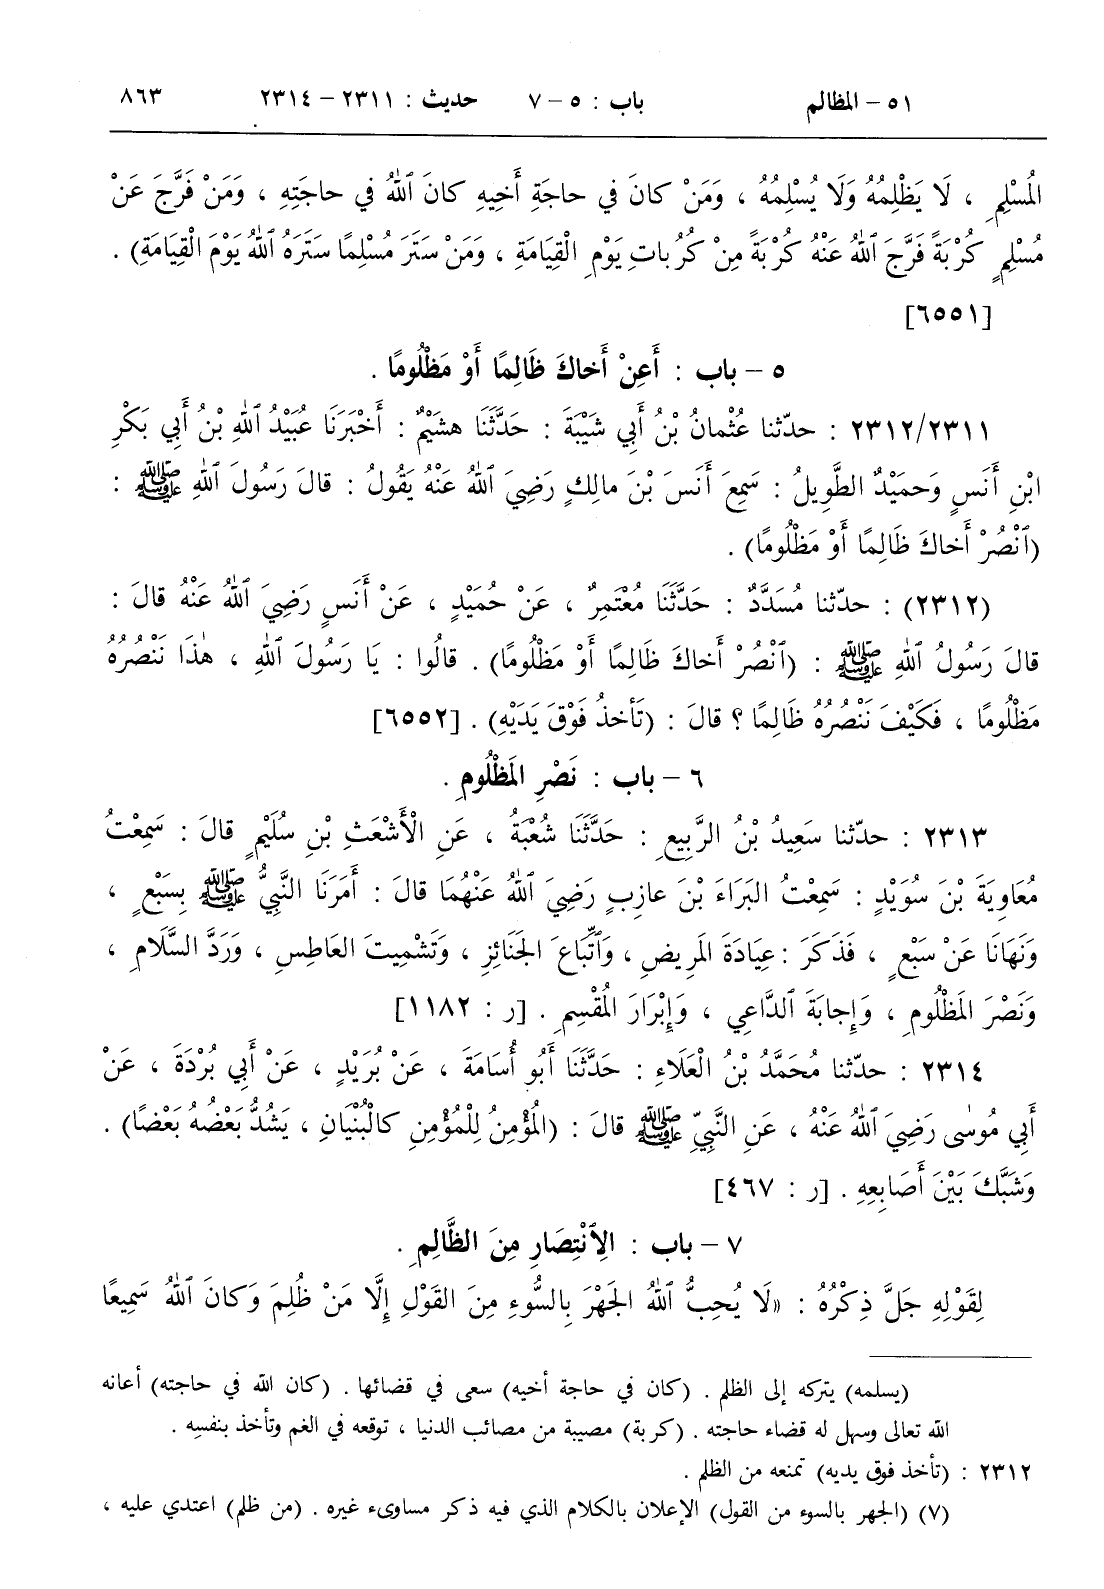 ٥١ - المظالم باب : ٥ - ٧ حديث : ٢٣١١ - ٢٣١٤ ٨٦٣
المُسْلِمِ ، لَا يَظْلِمُهُ وَلَا يُسْلِمُهُ ، وَمَنْ كانَ في حاجَةِ أَخِيهِ كانَ ٱللهُ في حاجَتِهِ ، وَمَنْ فَرَّجَ عَنْ
مُسْلِمٍ كُرْبَةً فَرَّجَ ٱللهُ عَنْهُ كُرْبَةً مِنْ كُرُباتِ يَوْمِ الْقِيَامَةِ ، وَمَنْ سَتَرَ مُسْلِمًا سَتَرَهُ ٱللهُ يَوْمَ الْقِيَامَةِ) .
[٦٥٥١]
٥ - باب : أَعِنْ أَخاكَ ظَالِمًا أَوْ مَظْلُومًا .
٢٣١٢/٢٣١١ : حدّثنا عُثْمانُ بْنُ أَبي شَيْبَةَ : حَدَّثَنَا هشَيْمٌ : أَخْبَرَنَا عُبَيْدُ ٱللهِ بْنُ أَبي بَكْرِ
ابْنِ أَنَسٍ وَحمَيْدٌ الطَّوِيلُ : سَمِعَ أَنَسَ بْنَ مالِكٍ رَضِيَ ٱللهُ عَنْهُ يَقُولُ : قالَ رَسُولُ ٱللهِ ﷺ :
(ٱنْصُرْ أَخاكَ ظَالِمًا أَوْ مَظْلُومًا) .
(٢٣١٢) : حدّثنا مُسَدَّدٌ : حَدَّثَنَا مُعْتَمِرٌ ، عَنْ حُمَيْدٍ ، عَنْ أَنَسٍ رَضِيَ ٱللهُ عَنْهُ قالَ :
قالَ رَسُولُ ٱللهِ ﷺ : (ٱنْصُرْ أَخاكَ ظَالِمًا أَوْ مَظْلُومًا) . قالُوا : يَا رَسُولَ ٱللهِ ، هٰذَا نَنْصُرُهُ
مَظْلُومًا ، فَكَيْفَ نَنْصُرُهُ ظَالِمًا ؟ قالَ : (تَأخذُ فَوْقَ يَدَيْهِ) . [٦٥٥٢]
٦ - باب : نَصْرِ المَظْلُومِ .
٢٣١٣ : حدّثنا سَعِيدُ بْنُ الرَّبِيعِ : حَدَّثَنَا شُعْبَةُ ، عَنِ الْأَشْعَثِ بْنِ سُلَيْمٍ قالَ : سَمِعْتُ
مُعَاوِيَةَ بْنَ سُوَيْدٍ : سَمِعْتُ البَرَاءَ بْنَ عازِبٍ رَضِيَ ٱللهُ عَنْهُمَا قالَ : أَمَرَنَا النَّبِيُّ ﷺ بِسَبْعٍ ،
وَنَهَانَا عَنْ سَبْعٍ ، فَذَكَرَ : عِيَادَةَ المَرِيضِ ، وَٱتِّبَاعَ الجَنَائِزِ ، وَتَشْمِيتَ العَاطِسِ ، وَرَدَّ السَّلَامِ ،
وَنَصْرَ المَظْلُومِ ، وَإِجابَةَ ٱلدَّاعِي ، وَإِبْرَارَ المُقْسِمِ . [ر : ١١٨٢]
٢٣١٤ : حدّثنا مُحَمَّدُ بْنُ الْعَلَاءِ : حَدَّثَنَا أَبُو أُسَامَةَ ، عَنْ بُرَيْدٍ ، عَنْ أَبي بُرْدَةَ ، عَنْ
أَبي مُوسٰى رَضِيَ ٱللهُ عَنْهُ ، عَنِ النَّبِيِّ ﷺ قالَ : (المُؤْمِنُ لِلْمُؤْمِنِ كالْبُنْيَانِ ، يَشُدُّ بَعْضُهُ بَعْضًا) .
وَشَبَّكَ بَيْنَ أَصَابِعِهِ . [ر : ٤٦٧]
٧ - باب : الِٱنْتِصَارِ مِنَ الظَّالِمِ .
لِقَوْلِهِ جَلَّ ذِكْرُهُ : «لَا يُحِبُّ ٱللهُ الجَهْرَ بِالسُّوءِ مِنَ القَوْلِ إِلَّا مَنْ ظُلِمَ وَكانَ ٱللهُ سَمِيعًا
(يسلمه) يتركه إلى الظلم . (كان في حاجة أخيه) سعى في قضائها . (كان الله في حاجته) أعانه
الله تعالى وسهل له قضاء حاجته . (كربة) مصيبة من مصائب الدنيا ، توقعه في الغم وتأخذ بنفسِه .
٢٣١٢ : (تأخذ فوق يديه) تمنعه من الظلم .
(٧) (الجهر بالسوء من القول) الإعلان بالكلام الذي فيه ذكر مساوىء غيره . (من ظلم) اعتدي عليه ،